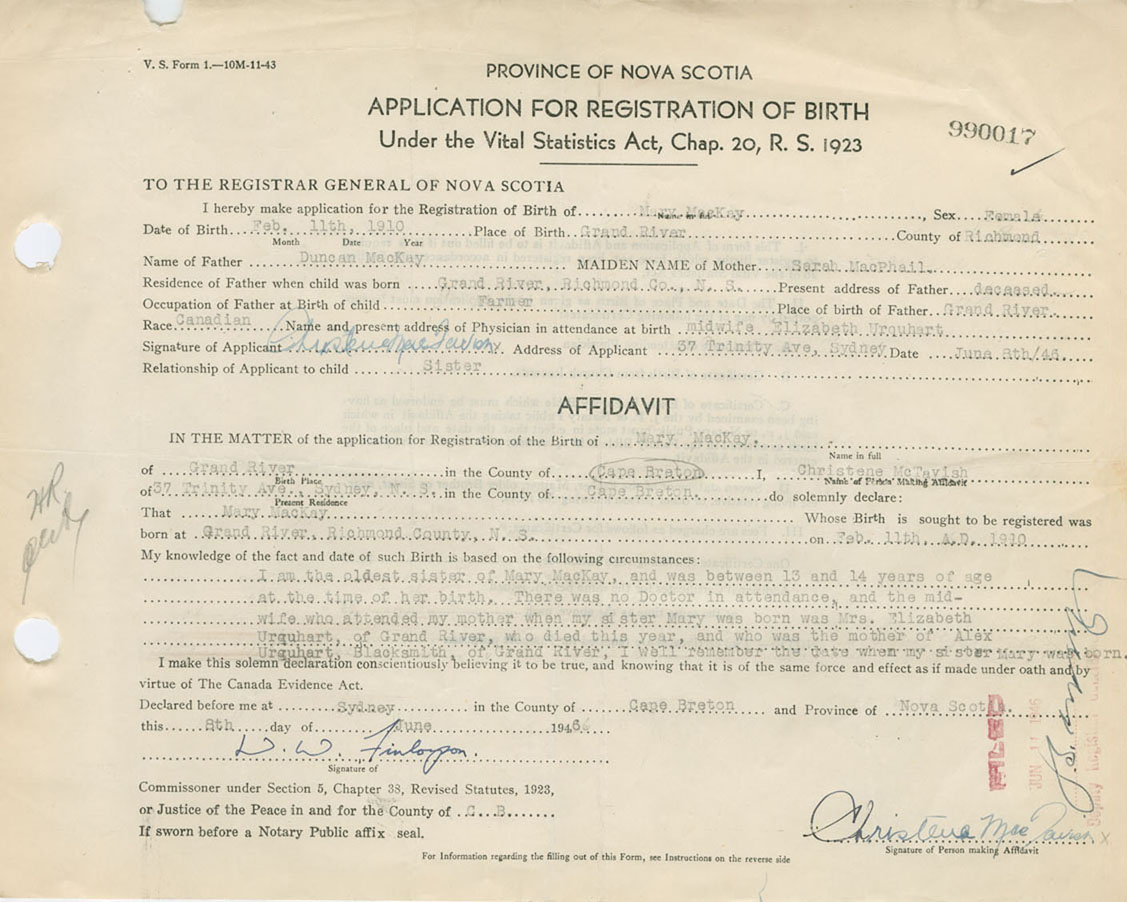 V. S. Form 1.—10M-11-43
PROVINCE OF NOVA SCOTIA
APPLICATION FOR REGISTRATION OF BIRTH
Under the Vital Statistics Act, Chap. 20, R. S. 1923
990017
TO THE REGISTRAR GENERAL OF NOVA SCOTIA
I hereby make application for the Registration of Birth of Mary MacKay, Sex Female
Name in full
Date of Birth Feb. 11th, 1910 Place of Birth Grand River County of Richmond
Month Date Year
Name of Father Duncan MacKay MAIDEN NAME of Mother Sarah MacPhail.
Residence of Father when child was born Grand River, Richmond Co., N. S. Present address of Father deceased.
Occupation of Father at Birth of child Farmer Place of birth of Father Grand River.
Race Canadian Name and present address of Physician in attendance at birth midwife Elizabeth Urquhart
Signature of Applicant Christene MacTavish x Address of Applicant 37 Trinity Ave, Sydney Date June 8th/46.
Relationship of Applicant to child Sister
AFFIDAVIT
IN THE MATTER of the application for Registration of the Birth of Mary MacKay.
Name in full
of Grand River in the County of Cape Breton I, Christene McTavish
Birth Place Name of Person Making Affidavit
of 37 Trinity Ave., Sydney, N. S. in the County of Cape Breton. do solemnly declare:
Present Residence
That Mary MacKay Whose Birth is sought to be registered was
born at Grand River, Richmond County, N. S. on Feb. 11th, A.D. 1910
My knowledge of the fact and date of such Birth is based on the following circumstances:
I am the oldest sister of Mary MacKay, and was between 13 and 14 years of age
at the time of her birth. There was no Doctor in attendance, and the mid-
wife who attended my mother when my sister Mary was born was Mrs. Elizabeth
Urquhart, of Grand River, who died this year, and who was the mother of Alex
Urquhart, Blacksmith, of Grand River, I well remember the date when my sister Mary was born.
I make this solemn declaration conscientiously believing it to be true, and knowing that it is of the same force and effect as if made under oath and by
virtue of The Canada Evidence Act.
Declared before me at Sydney in the County of Cape Breton and Province of Nova Scotia.
this 8th day of June 1946
D. W. Finlayson.
Signature of
Commissoner under Section 5, Chapter 38, Revised Statutes, 1923,
or Justice of the Peace in and for the County of C. B.
If sworn before a Notary Public affix seal.
FILED
JUN 11 1946
Deputy Registrar General
Christena MacTavish x
Signature of Person making Affidavit
For Information regarding the filling out of this Form, see Instructions on the reverse side